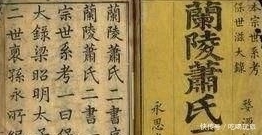 婺源
蘭陵蕭氏二
本宗世系考
保世滋大錄
永思
蘭陵蕭氏二書
蘭陵蕭氏二書
宗世系考一曰保
大錄梁昭明太
二世裔孫永所